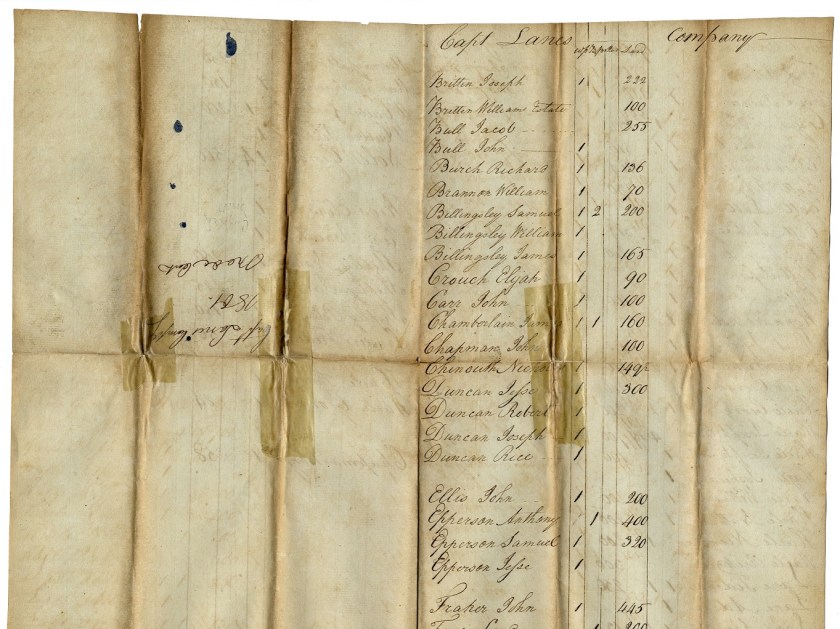 Capt Lanes Company
wp Bp Land
Brittin Joseph 1 222
Brittin Williams Estate 100
Bull Jacob 255
Bull John 1
Burch Richard 1 136
Brannon William 1 70
Billingsley Samuel 1 2 200
Billingsley William 1
Billingsley James 1 165
Crouch Elijah 1 90
Carr John 1 100
Chamberlain 1 1 160
Chapman John 100
Chinouth 1 149½
Duncan Jesse 1 300
Duncan Robert 1
Duncan Joseph 1
Duncan Rice 1
Ellis John 1 200
Epperson Anthony 1 400
Epperson Samuel 1 320
Epperson Jesse 1
Fraker John 1 445
1 200
Capt Lanes Compy